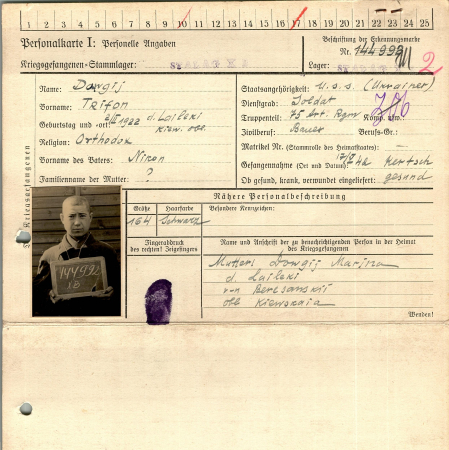 1 2 3 4 5 6 7 8 9 10 11 12 13 14 15 16 17 18 19 20 21 22 23 24 25
Personalkarte I: Personelle Angaben
Kriegsgefangenen-Stammlager:
Beschriftung der Erkennungsmarke
Nr. 144992
Lager:
2
Name: Dowgij
Vorname: Trifon
Geburtstag und -ort: 2/III 1922 d. Lailski
Kiew. obl.
Religion: Orthodox
Vorname des Vaters: Nikon
Familienname der Mutter: ?
Staatsangehörigkeit: U.S.S. (Ukrainer)
Dienstgrad: Soldat
Truppenteil: 75 Art. Rgm Komp. usw.
Zivilberuf: Bauer Berufs-Gr.:
Matrikel Nr. (Stammrolle des Heimatstaates):
Gefangennahme (Ort und Datum): 42 Kertsch
Ob gesund, krank, verwundet eingeliefert: gesund
Kriegsgefangenen
144992
Nähere Personalbeschreibung
Größe Haarfarbe Besondere Kennzeichen:
164 Schwarz
Fingerabdruck
des rechten! Zeigefingers
Name und Anschrift der zu benachrichtigenden Person in der Heimat
des Kriegsgefangenen
Mutter: Dowgij Marina
d. Lailski
Beresanskij
obl Kiewskaia
Wenden!